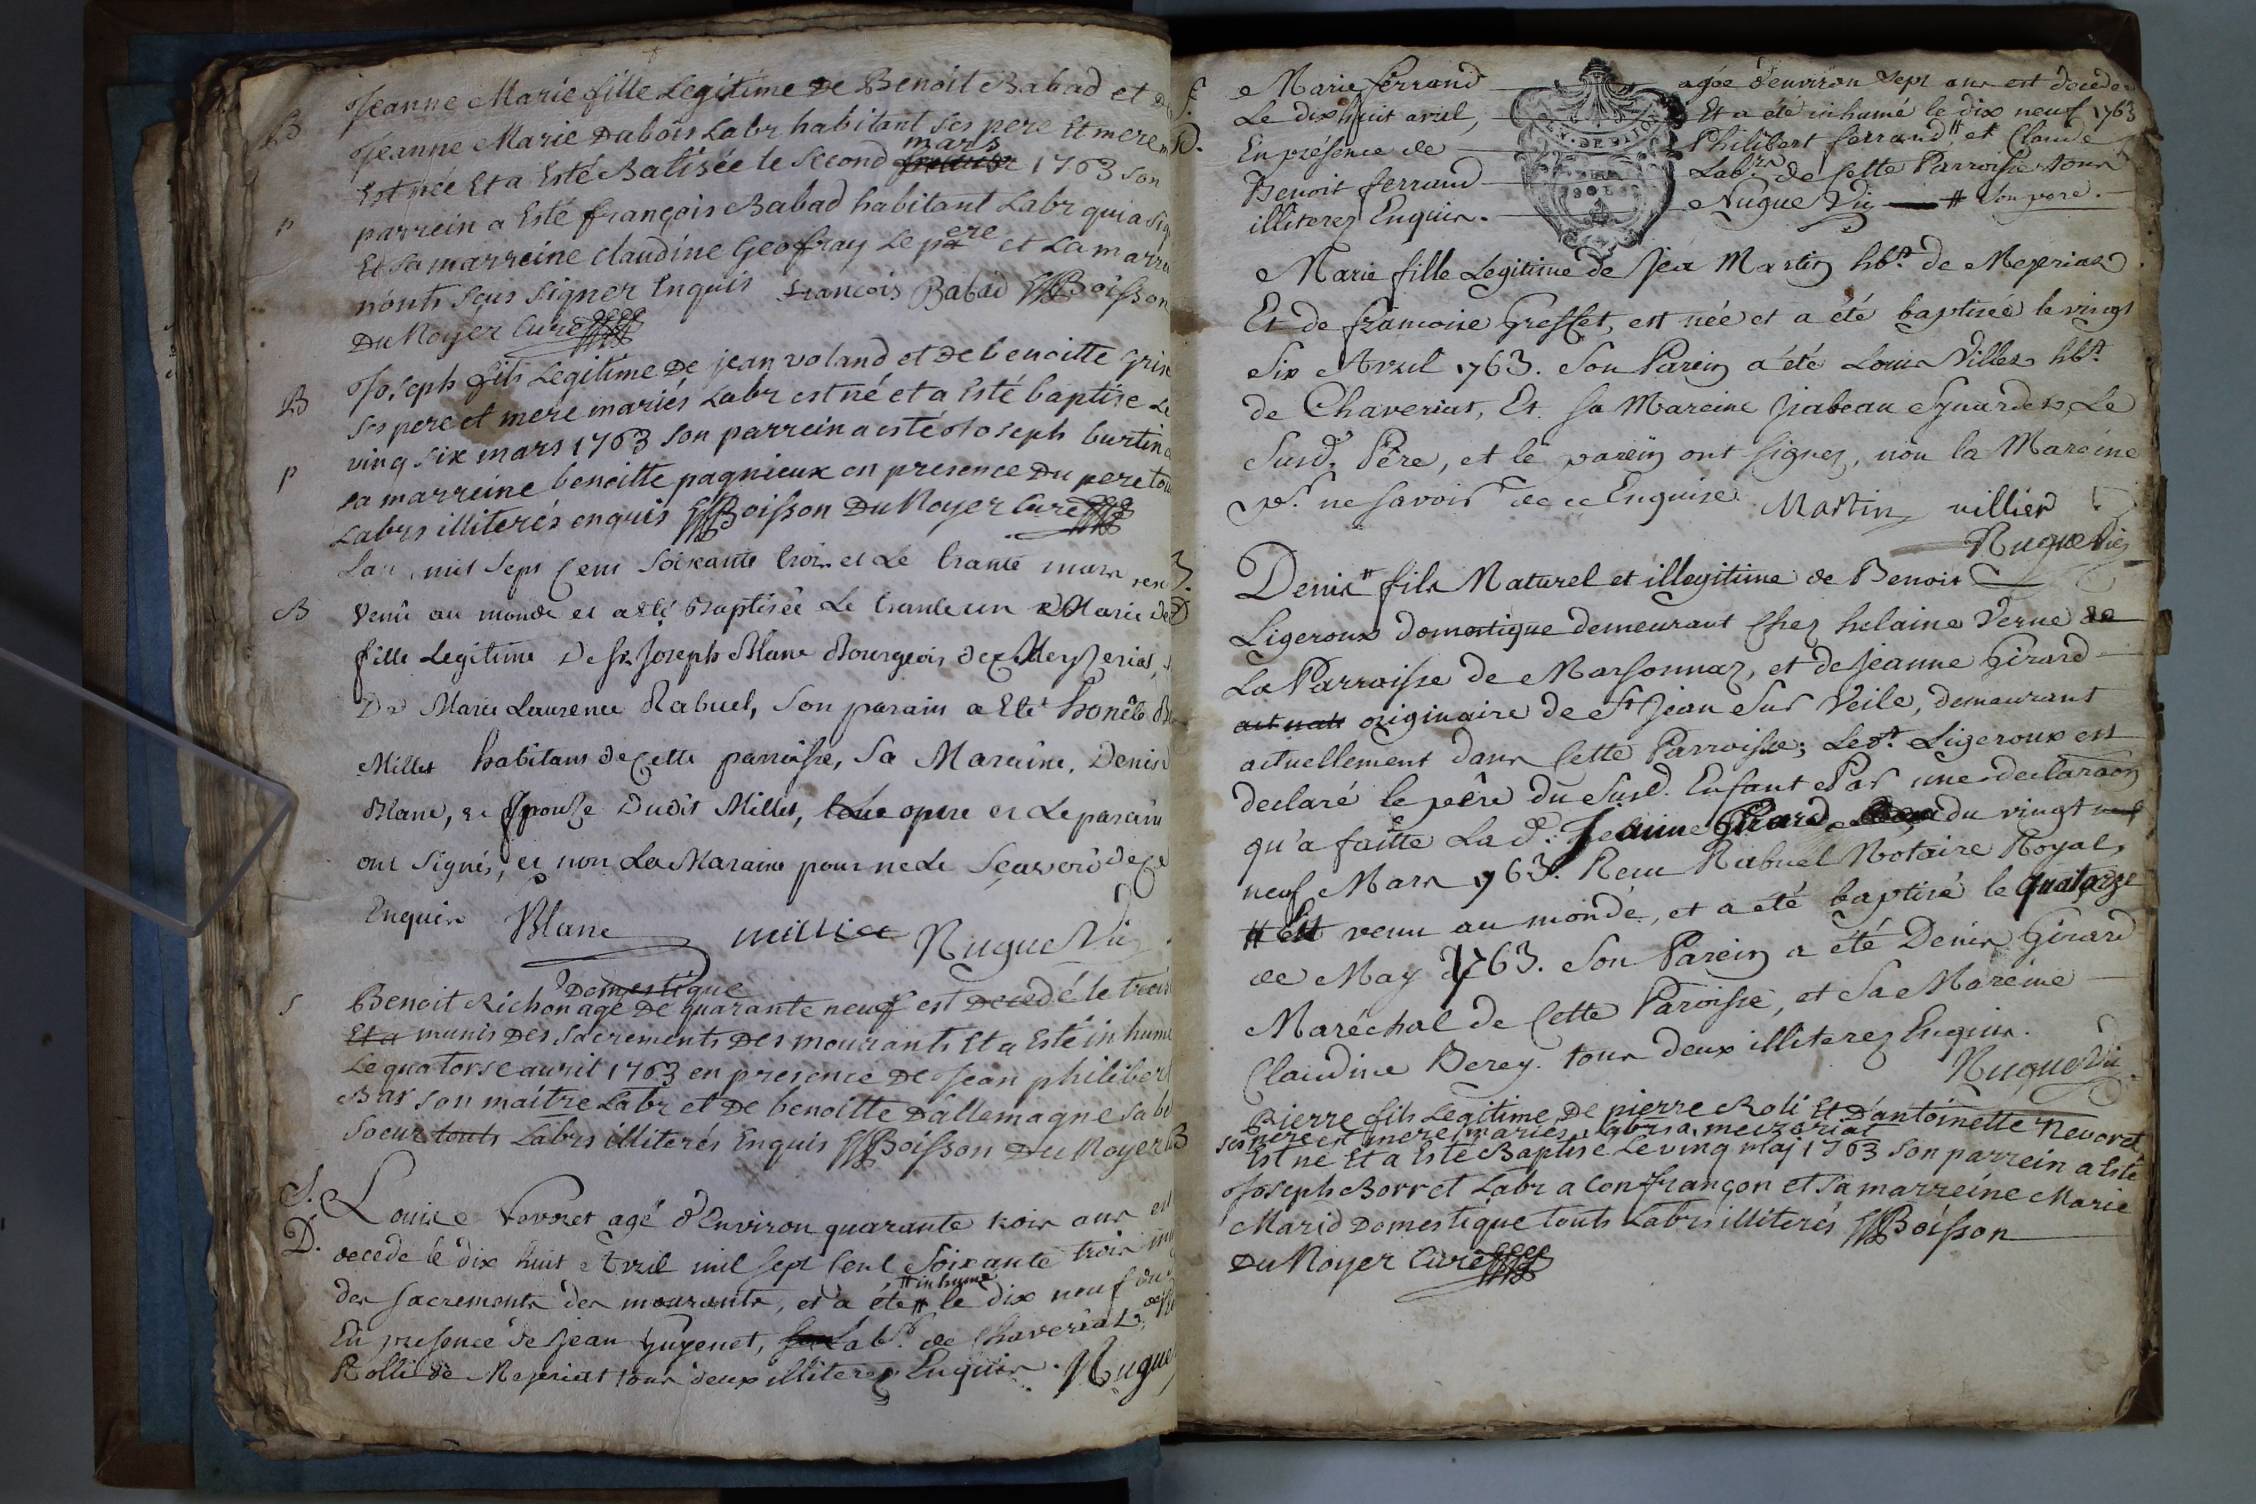 B
Jeanne Marie fille Legitime De Benoit Babad et De
Jeanne Marie Dubois Labr habitant ses pere Et mere
mars
Est née Et a Esté Batisée le second 1763 son
P
parrein a Esté françois Babad habitant Labr qui a sig
Et sa marreine claudine Geofray Le pere et La marre
n'onts sçus signer Enquis francois Babad Boisson
Du Noyer Curé
B
Joseph fils Legitime De jean voland et De benoitte
ses pere et mere mariés Labr est né et a Esté baptise Le
P
vinq six mars 1763 son parrein a esté Joseph burtin
sa marreine benoitte pagnieux en presence Du pere tou
Labrs illiterés enquis Boisson Du Noyer Curé
Lan mil sept cent soixante trois et Le trante mars
B
venû au monde et a eté Baptisée Le trante un Marie De
fille Legitime De Sr. Joseph Blanc Bourgeois de Meyzerias,
De Marie Laurence Rabuel, Son parain a Eté honête
Millet habitans de cette parroisse, Sa Maraine, Denise
Blanc, Epouse Dudit Millet, Le pere et Le parain
ont Signés, et non La Maraine pour ne Le Sçavoir de ce
Enquise Blanc millet Nugue Vic
Domestique
S
Benoit Richon agé De quarante neuf est Decedé le treiz
Et a munis Des sacrements Des mourants Et a Esté inhumé
Le quatorse avril 1763 en presence De Jean philibert
Bas son maitre Labr et De benoitte Dallemagne sa be
soeur touts Labrs illiterés Enquis Boisson Du Noyer
S. Louise Nevoret agé d'Environ quarante trois ans est
D. decede le dix huit Avril mil sept cent soixante trois
# inhumé
des sacrements des mourants, et a éte # le dix neuf du
En presence de Jean Guyenet, Labr. de Chaveriat,
Rolli de Meseriat tous deux illiterez Enquis. Nugue
S. Marie ferrand agée d'environ sept ans est decedee
Le dix huit avril, Et a été inhumé le dix neuf 1763
D. En présence de Philibert ferrand #, et Claude
Benoit ferrand Labrs de cette Parroisse tous
illiterez Enquis. Nugue Vic # son pere.
Marie fille Legitime de Jea Martin hbt. de Meseriat
Et de francoise Gresset, est née et a été baptisée le vingt
Six Avril 1763. Son Parein a été Louis Villier hbt.
de Chaveriat, Et sa Mareine Jsabeau, Le
Susd. Père, et le parein ont signez, non la Mareine
pr. ne savoir de ce Enquise Martin villier
Nugue Vic
B. Denis # fils Naturel et illegitime de Benoit
D Ligeroux domestique demeurant chez helaine Verne de
La Parroisse de Marsonnaz, et de Jeanne Girard
originaire de St. Jean Sur Veile, demeurant
actuellement dans cette Parroisse; Ledt. Ligeroux est
declaré le père du Susd. Enfant Par une declaraon
qu'a faitte Lade. Jeanne Girard du vingt
neuf Mars 1763. Recu Rabuel Notaire Royal,
# Est venu au monde, et a été baptisé le quatorze
de May 1763. Son Parein a été Denis Girard
Maréchal de Cette Paroisse, et Sa Mareine
Claudine Berey. tous deux illiterez Enquis.
Nugue Vic
B
Pierre fils Legitime De pierre Roli Et D'antoinette Nevoret
ses pere et mere mariés Labrs a meizeriat
Est né Et a Esté Baptisé Le vinq maj 1763 son parrein a Esté
Joseph Borret Labr a Confrançon et sa marreine Marie
Marid Domestique touts Labrs illiterés Boisson
Du Noyer Curé